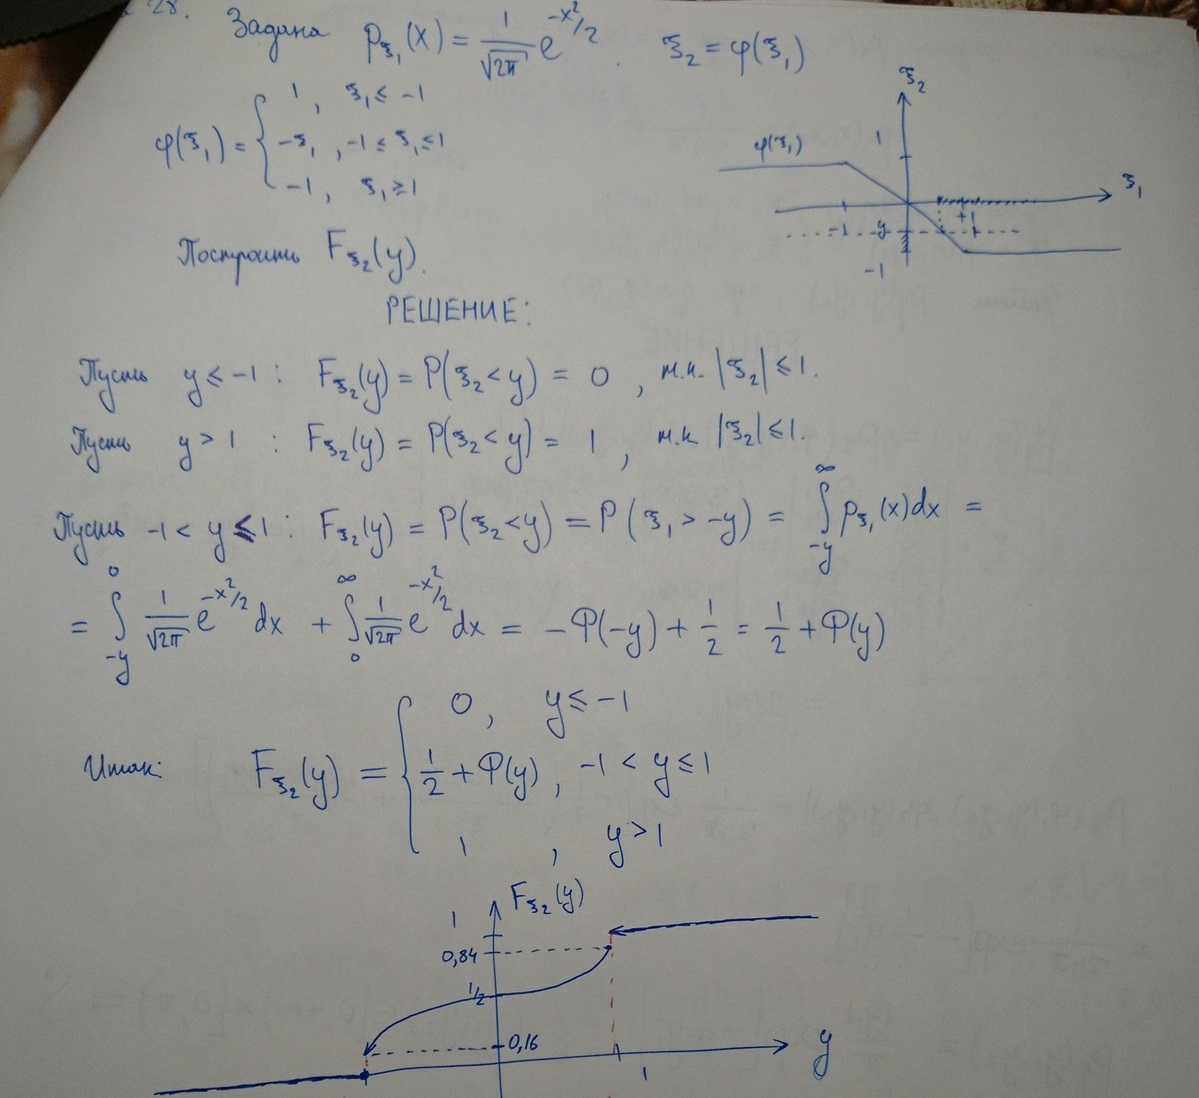 28.
Задана p_ξ₁(x) = 1/√2π e^(-x²/2). ξ₂ = φ(ξ₁)
φ(ξ₁) = { 1, ξ₁ ≤ -1
-ξ₁, -1 ≤ ξ₁ ≤ 1
-1, ξ₁ ≥ 1
ξ₂
1
φ(ξ₁)
ξ₁
-1 y +1
-1
Построить F_ξ₂(y).
РЕШЕНИЕ:
Пусть y ≤ -1 : F_ξ₂(y) = P(ξ₂ < y) = 0, т.к. |ξ₂| ≤ 1.
Пусть y > 1 : F_ξ₂(y) = P(ξ₂ < y) = 1, т.к. |ξ₂| ≤ 1.
Пусть -1 < y ≤ 1 : F_ξ₂(y) = P(ξ₂ < y) = P(ξ₁ > -y) = ∫_{-y}^{∞} p_ξ₁(x)dx =
= ∫_{-y}^{0} 1/√2π e^(-x²/2) dx + ∫_{0}^{∞} 1/√2π e^(-x²/2) dx = -Φ(-y) + 1/2 = 1/2 + Φ(y)
Итак: F_ξ₂(y) = { 0, y ≤ -1
1/2 + Φ(y), -1 < y ≤ 1
1, y > 1
F_ξ₂(y)
1
0,84
1/2
0,16
y
1